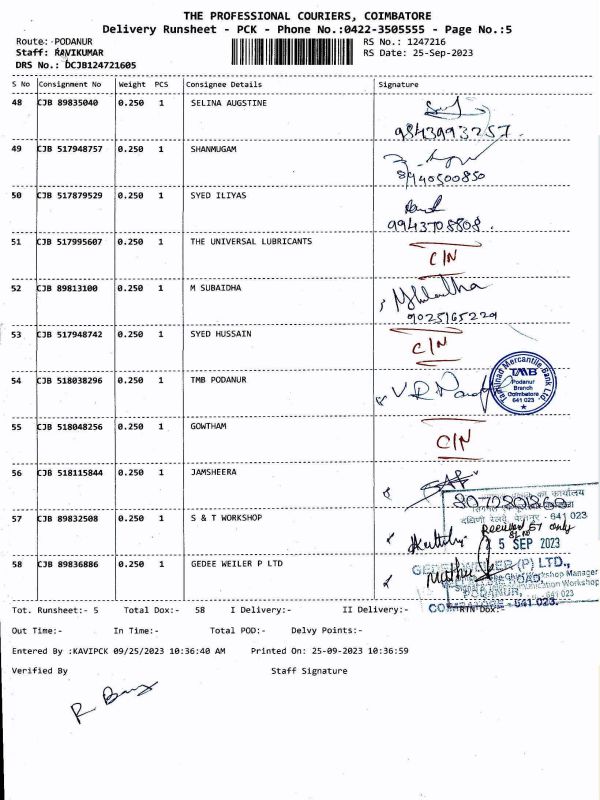 THE PROFESSIONAL COURIERS, COIMBATORE
Delivery Runsheet - PCK - Phone No.:0422-3505555 - Page No.:5
Route: PODANUR RS No.: 1247216
Staff: RAVIKUMAR RS Date: 25-Sep-2023
DRS No.: DCJB124721605
S No Consignment No Weight PCS Consignee Details Signature
48 CJB 89835040 0.250 1 SELINA AUGSTINE
9843993257.
49 CJB 517948757 0.250 1 SHANMUGAM
8940500850
50 CJB 517879529 0.250 1 SYED ILIYAS
9943708808.
51 CJB 517995607 0.250 1 THE UNIVERSAL LUBRICANTS
C/N
52 CJB 89813100 0.250 1 M SUBAIDHA
9025165229
53 CJB 517948742 0.250 1 SYED HUSSAIN
C/N
54 CJB 518038296 0.250 1 TMB PODANUR
Tamilnad Mercantile Bank Ltd.
TMB
Podanur
Branch
Coimbatore
641 023
55 CJB 518048256 0.250 1 GOWTHAM
C/N
56 CJB 518115844 0.250 1 JAMSHEERA
8072801860
का कार्यालय
57 CJB 89832508 0.250 1 S & T WORKSHOP
दक्षिणी रेलवे, - 641 023
Received only
25 SEP 2023
58 CJB 89836886 0.250 1 GEDEE WEILER P LTD
GEDEE WEILER (P) LTD.,
Workshop Manager
ROAD,
Workshop
PODANUR, - 641 023
COIMBATORE - 641 023.
Tot. Runsheet:- 5 Total Dox:- 58 I Delivery:- II Delivery:- RTN Dox:-
Out Time:- In Time:- Total POD:- Delvy Points:-
Entered By :KAVIPCK 09/25/2023 10:36:40 AM Printed On: 25-09-2023 10:36:59
Verified By Staff Signature